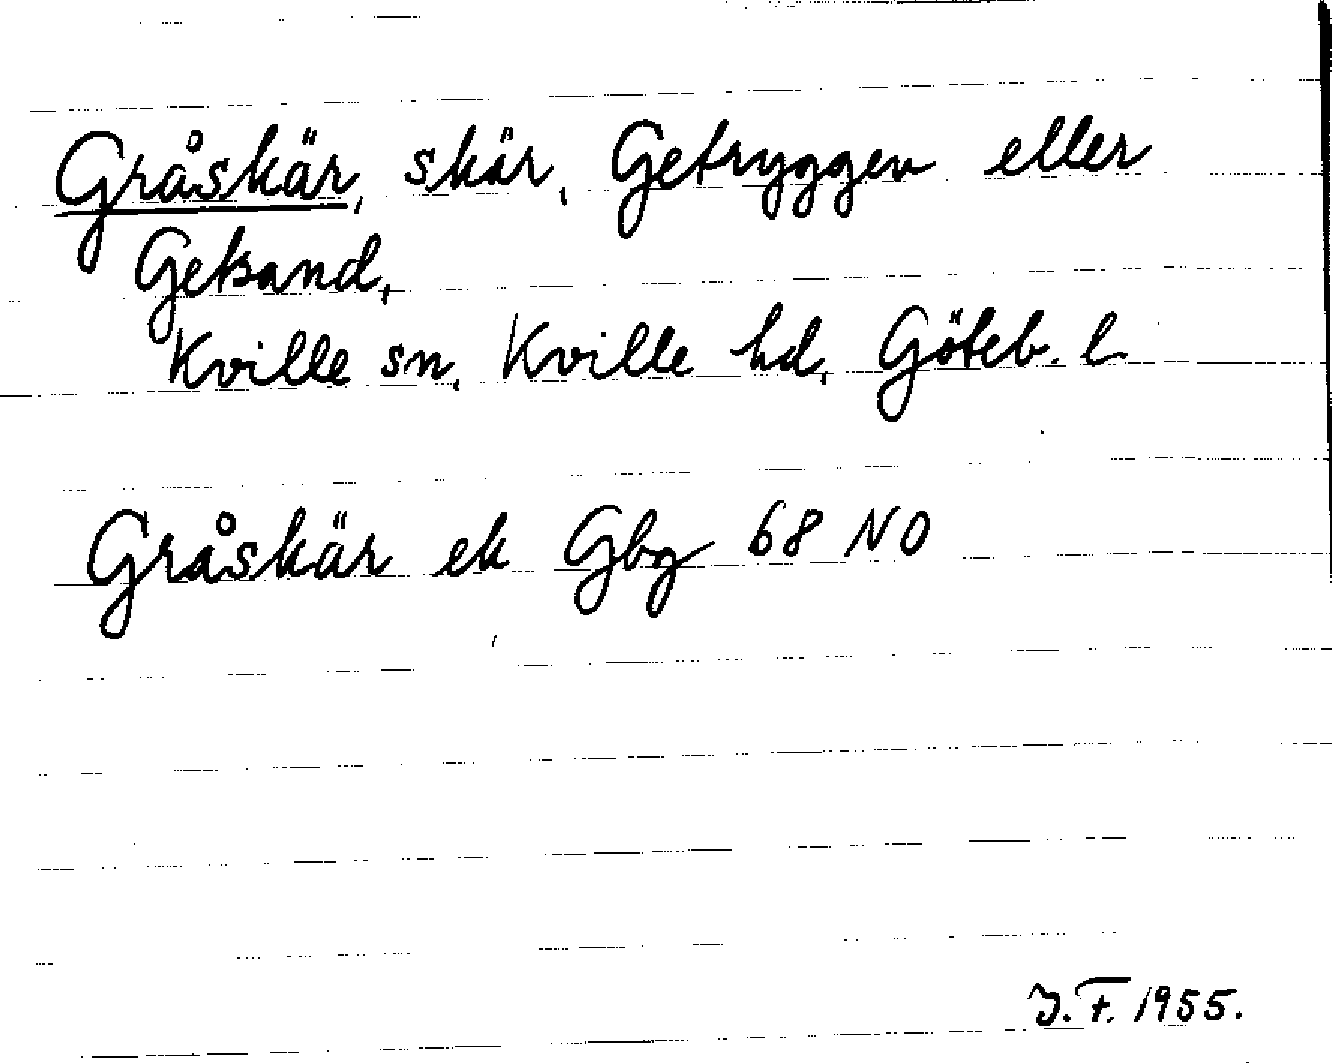 Gråskär, skär, Getryggen eller
Getsand,
Kville sn, Kville hd, Göteb. l
Gråskär ek Gbg 68 NO
J.F. 1955.